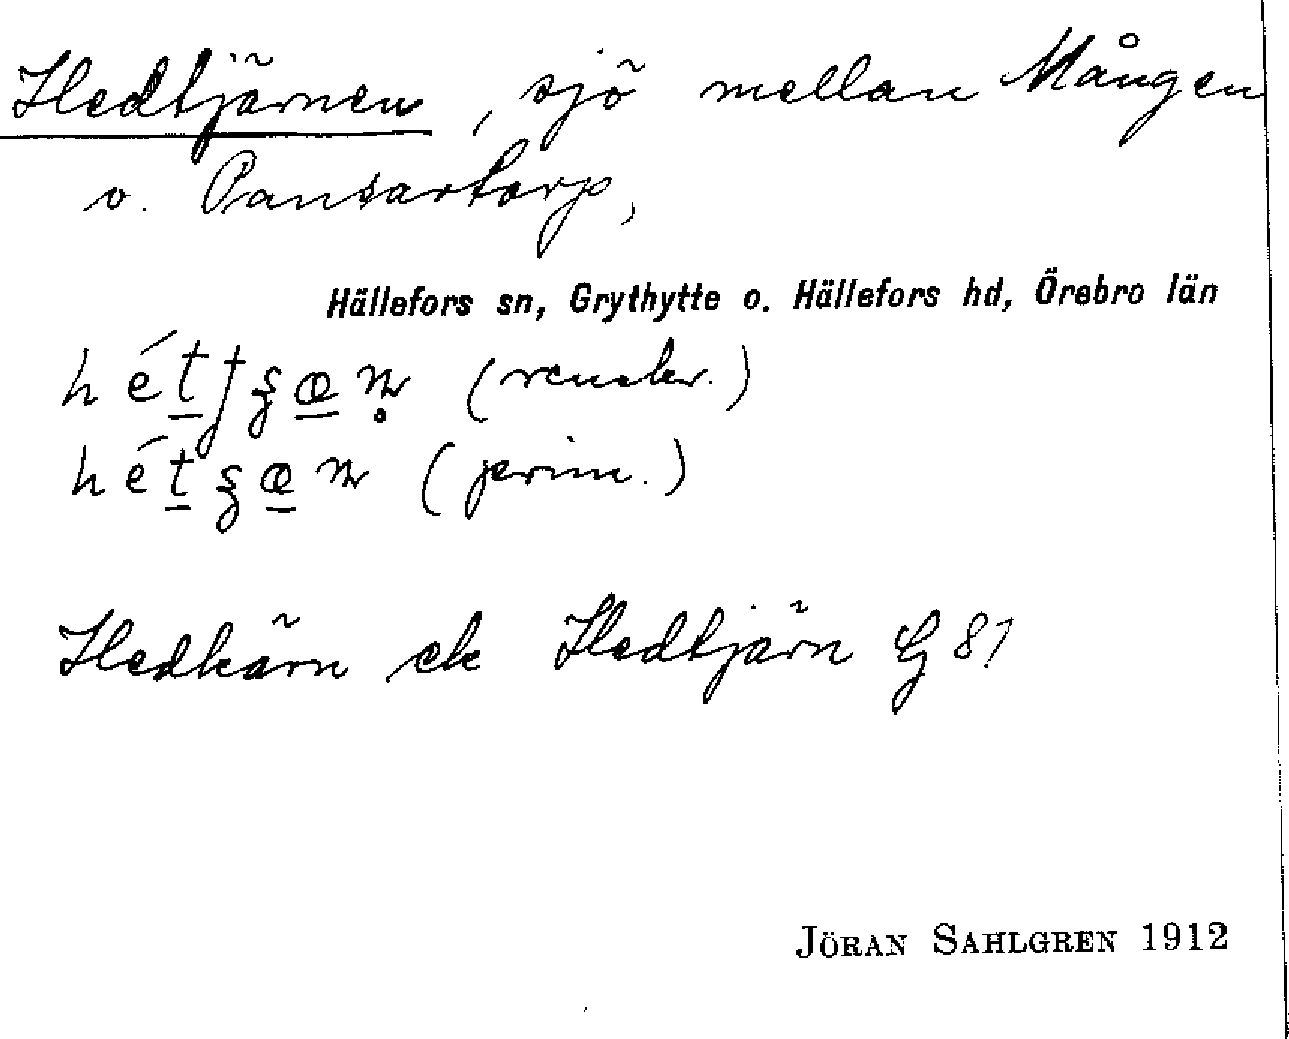 Hedtjärnen, sjö mellan Mången
o. Pansartorp,
Hällefors sn, Grythytte o. Hällefors hd, Örebro län
(renskr.)
(prim.)
Hedkärn ek Hedtjärn G 81
JÖRAN SAHLGREN 1912